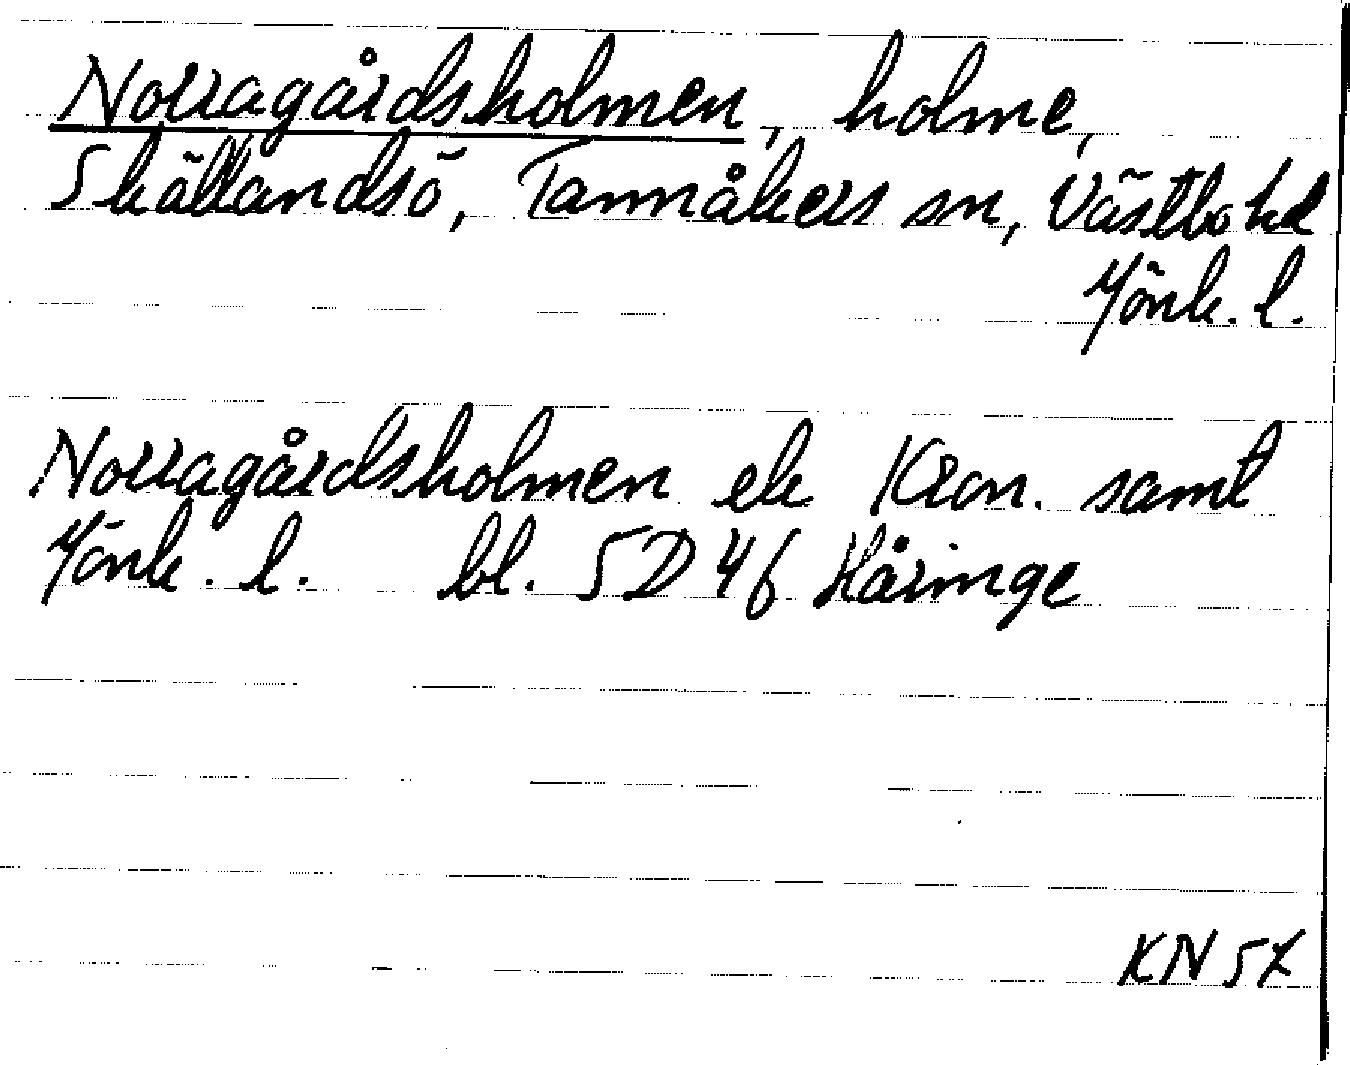 Norragårdsholmen, holme,
Skällandsö, Tannåkers sn, Västbo hd
Jönk. l.
Norragårdsholmen ek Kron. samt
Jönk. l. bl. 5D 4f Håringe
KN 57